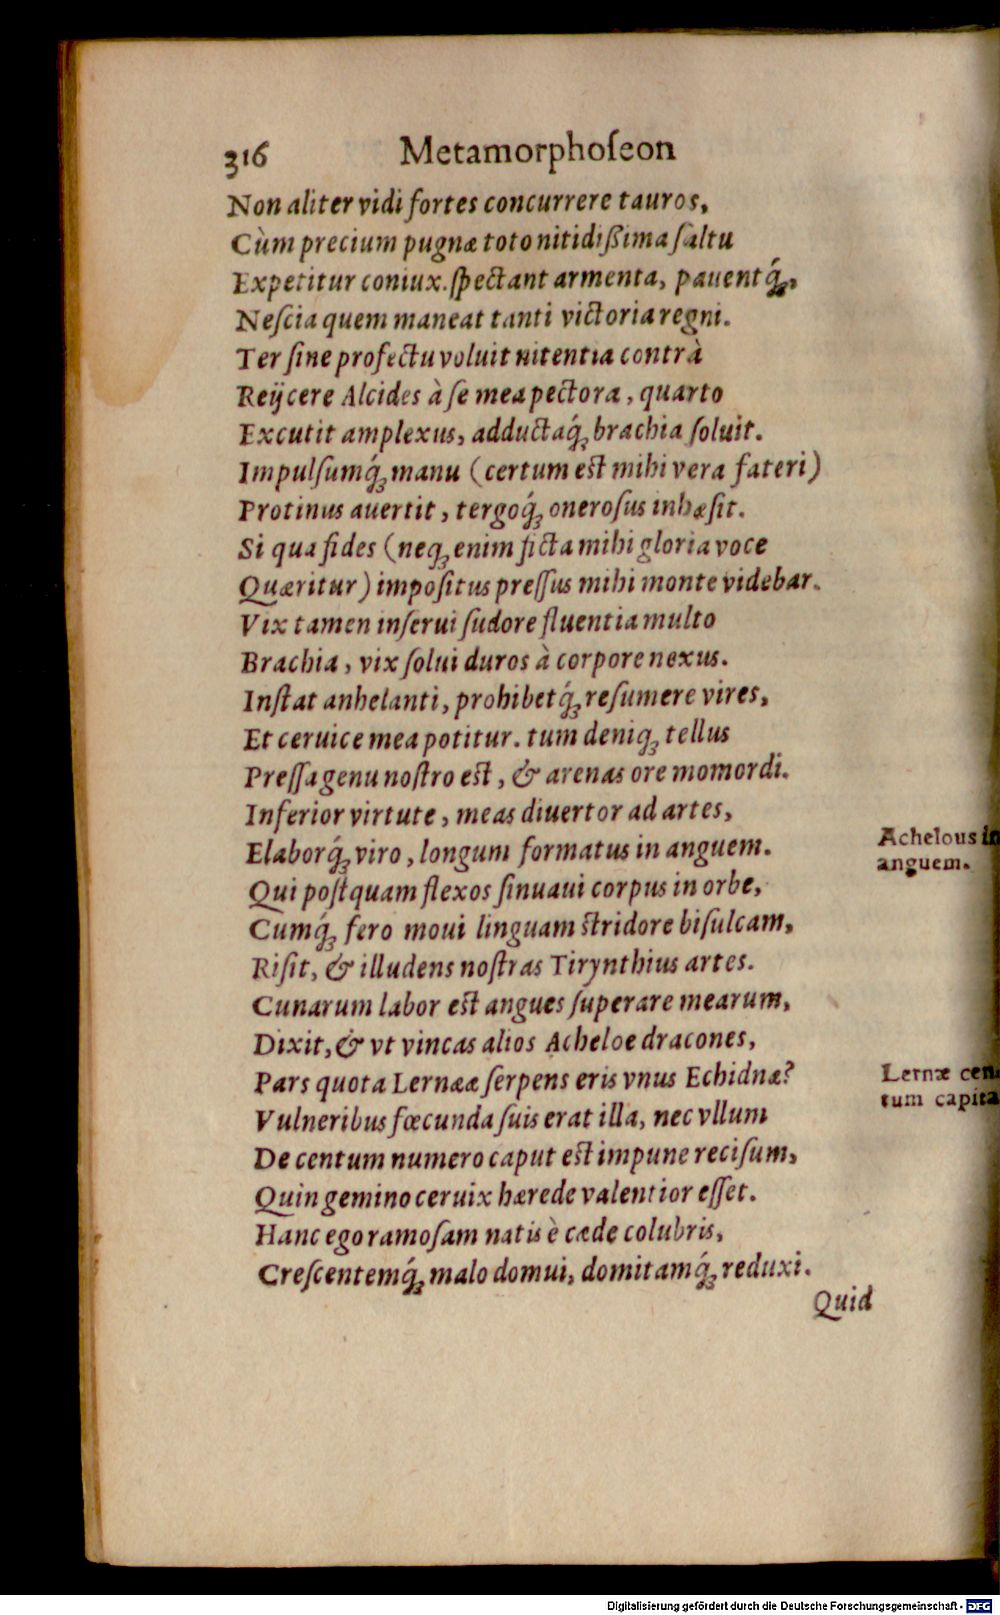 316 Metamorphoſeon
Non aliter vidi fortes concurrere tauros,
Cùm precium pugnæ toto nitidißima ſaltu
Expetitur coniux. ſpectant armenta, pauentq́ꝫ,
Neſcia quem maneat tanti victoria regni.
Ter ſine profectu voluit nitentia contrà
Reijcere Alcides à ſe mea pectora, quarto
Excutit amplexus, adductaq́ꝫ brachia ſoluit.
Impulſumq́ꝫ manu (certum eſt mihi vera fateri)
Protinus auertit, tergoq́ꝫ oneroſus inhæſit.
Si qua fides (neqꝫ enim ficta mihi gloria voce
Quæritur) impoſitus preſſus mihi monte videbar.
Vix tamen inſerui ſudore fluentia multo
Brachia, vix ſolui duros à corpore nexus.
Inſtat anhelanti, prohibetq́ꝫ reſumere vires,
Et ceruice mea potitur. tum deniqꝫ tellus
Preſſa genu noſtro eſt, & arenas ore momordi.
Inferior virtute, meas diuertor ad artes,
Elaborq́ꝫ viro, longum formatus in anguem.
Achelous in
anguem.
Qui poſtquam flexos ſinuaui corpus in orbe,
Cumq́ꝫ fero moui linguam ſtridore biſulcam,
Riſit, & illudens noſtras Tirynthius artes.
Cunarum labor eſt angues ſuperare mearum,
Dixit, & vt vincas alios Acheloe dracones,
Pars quota Lernææ ſerpens eris vnus Echidnæ?
Lernæ cen
tum capita
Vulneribus fœcunda ſuis erat illa, nec vllum
De centum numero caput eſt impune reciſum,
Quin gemino ceruix hærede valentior eſſet.
Hanc ego ramoſam natis è cæde colubris,
Creſcentemq́ꝫ malo domui, domitamq́ꝫ reduxi.
Quid
Digitalisierung gefördert durch die Deutsche Forschungsgemeinschaft - DFG